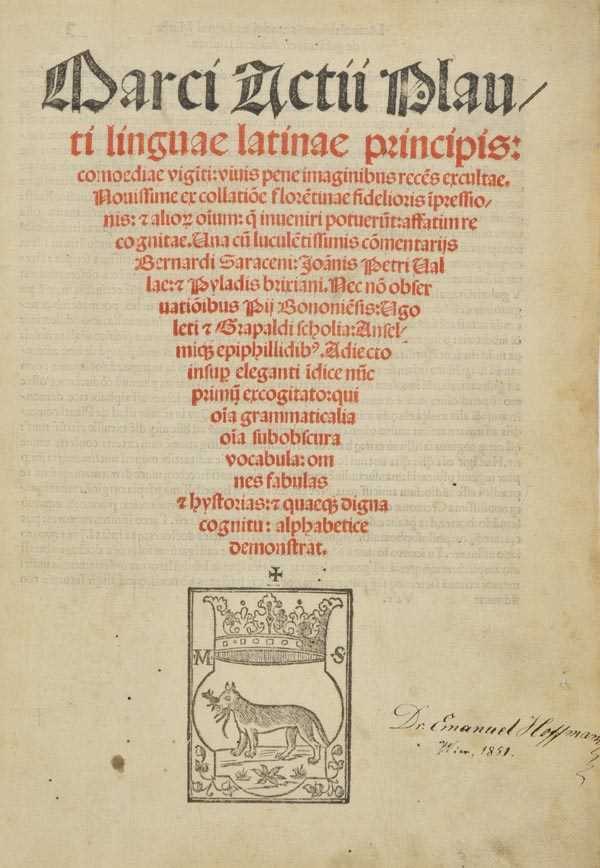 Marci Actii Plau/
ti linguae latinae principis:
comoediae viginti: viuis pene imaginibus recẽs excultae.
Nouissime ex collatiõe florẽtinae fidelioris ĩpressio-
nis: ⁊ alioꝝ oĩum: q̃ inueniri potuerũt: affatim re
cognitae. Una cũ luculẽtissimis cõmentarijs
Bernardi Saraceni: Joãnis Petri Ual
lae: ⁊ Pyladis brixiani. Nec nõ obser
uatiõibus Pij Bononiẽsis: Ugo
leti ⁊ Grapaldi scholia: Ansel-
miqꝫ epiphillidibꝰ. Adiecto
insuꝑ eleganti ĩdice nũc
primũ excogitato: qui
oĩa grammaticalia
oĩa subobscura
vocabula: om
nes fabulas
⁊ hystorias: ⁊ quaeqꝫ digna
cognitu: alphabetice
demonstrat.
✠
M S
Dr. Emanuel Hoffmann
Wien, 1851.